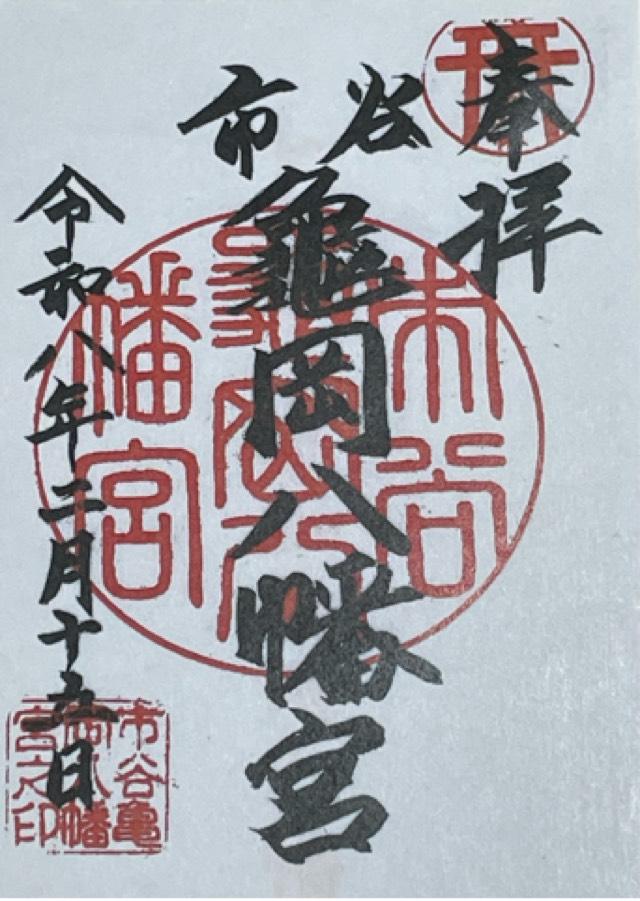 奉拝
市谷
龜岡八幡宮
令和八年二月十五日
市谷
龜岡八
幡宮
市谷亀
岡八幡
宮之印